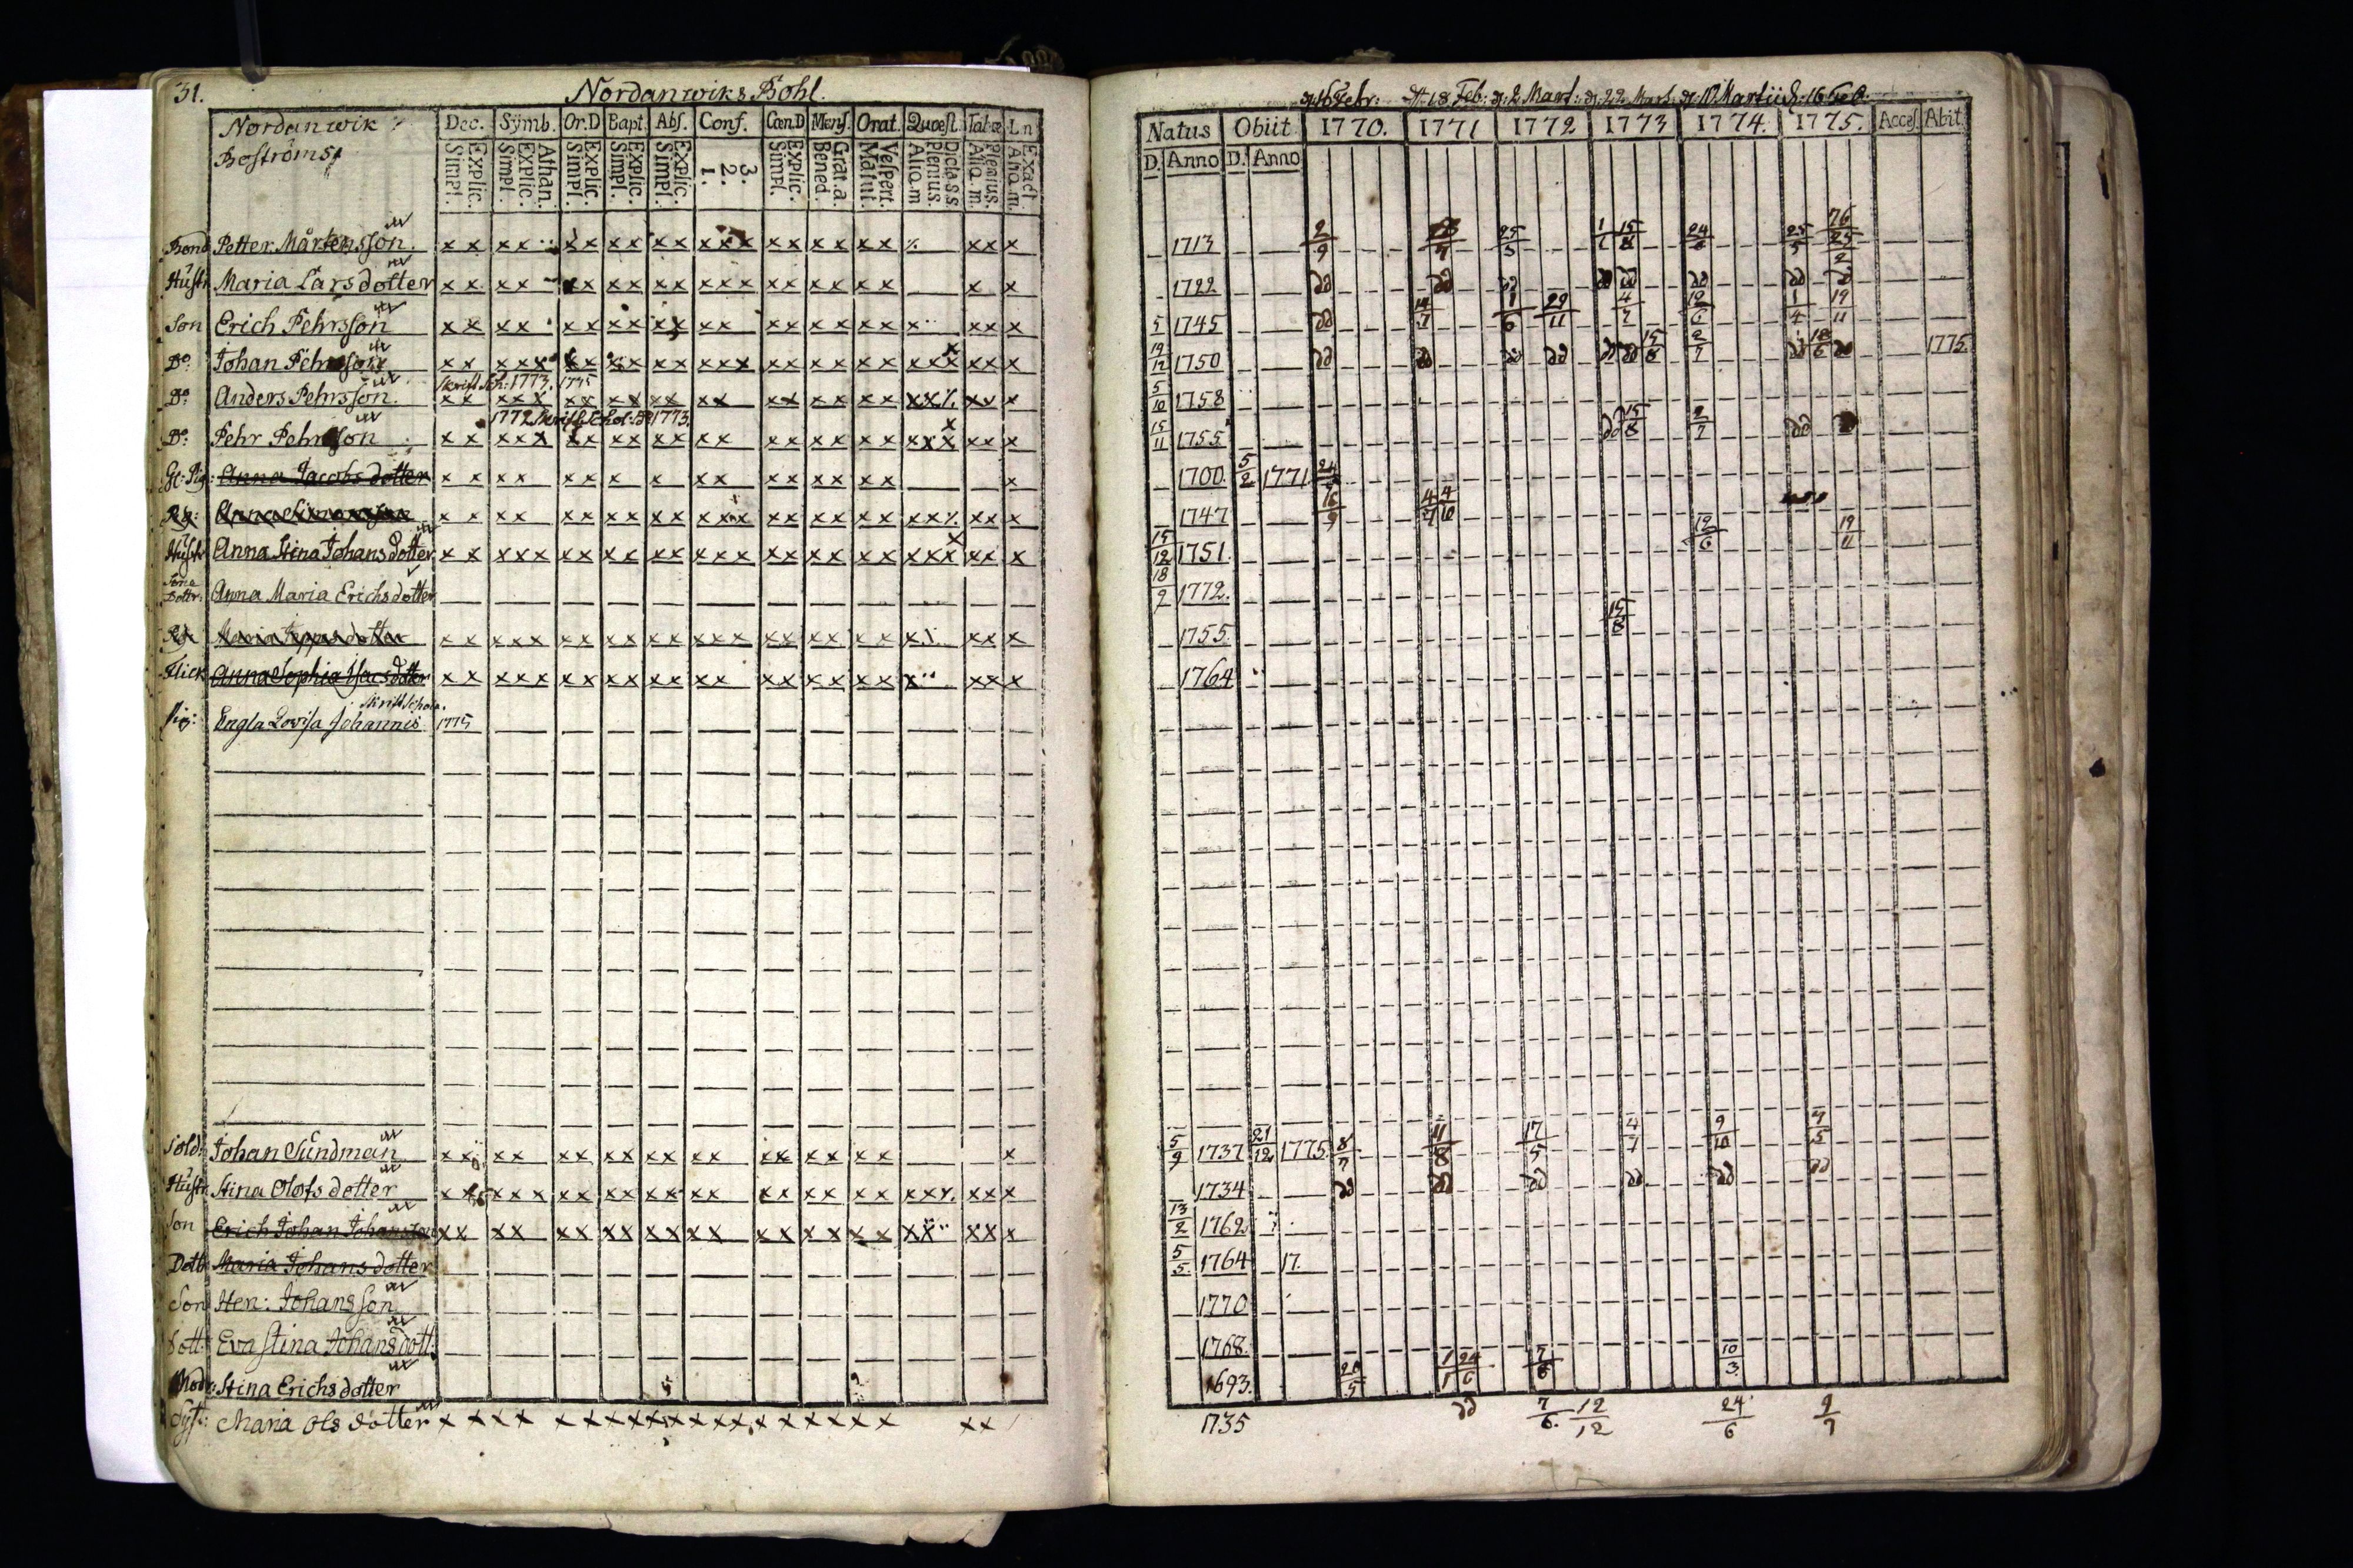 31.
Nordanwiks Bohl.
Nordanwik
Boströms
Dec. Symb. Or.D Bapt. Abs. Conf. Cœn.D Mens. Orat. Quæst. Tabæ L n
Explic. Simpl. Athan. Explic. Simpl. Explic. Simpl. Explic. Simpl. Explic. Simpl. 3. 2. 1. Explic. Simpl. Grat. a. Bened. Vespert. Matut. Dicta S.S. Plenius. Aliq. m Plenius. Aliq. m. Exact. Aliq. m.
Bond Petter Mårtensson x x x x x x x x x x x x x x x x x x x x x x
Hustr Maria Larsdotter x x x x x x x x x x x x x x x x x x x x x
Son Erich Pehrsson x x x x x x x x x x x x x x x x x x x x x x
Do: Johan Pehrsson x x x x x x x x x x x x x x x x x x x x x x x x x x x
1773. 1775
Do: Anders Pehrsson. x x x x x x x x x x x x x x x x x x x x x x x x
1772 1773.
Do: Pehr Pehrsson x x x x x x x x x x x x x x x x x x x x x x x x x
Anna Jacobsdotter x x x x x x x x x x x x x x x x x
x x x x x x x x x x x x x x x x x x x x x x x x
Hustr Anna Stina Johansdotter x x x x x x x x x x x x x x x x x x x x x x x x x x
Sons Dottr. Anna Maria Erichsdotter
Maria Jeppsdotter x x x x x x x x x x x x x x x x x x x x x x x x
Flick Anna Sophia Isacsdotter x x x x x x x x x x x x x x x x x x x x x x x
Pig: Engla Lovisa Johannis 1775
Sold: Johan Sundman x x x x x x x x x x x x x x x x x x x
Hustr Stina Olofsdotter x x x x x x x x x x x x x x x x x x x x x x x x
Son Erich Johan Johansson x x x x x x x x x x x x x x x x x x x x x x x
Dottr Maria Johansdotter
Son Hen: Johansson
Dott: Eva Stina Johansdott:
Modr: Stina Erichsdotter
Syst: Maria Olsdotter x x x x x x x x x x x x x x x x x x x x x x
d. 18 Feb: d. 2 Mart: d. 22 Mart: d. 17 Martii d. 16 Feb.
Natus Obiit 1770. 1771 1772 1773 1774. 1775. Acces. Abit.
D. Anno D. Anno
1713 2/9 25/5 1/6 15/8 24/6 25/5 76 25/2
1722 dd dd dd dd dd dd dd dd
5 1745 dd 14/7 1/6 29/11 4/7 12/6 1/4 19/11
19/12 1750 dd dd dd dd dd dd 15/8 2/7 dd 18/6 dd 1775
5/10 1758
15/11 1755 dd 15/8 2/7 dd
1700 5/2 1771 24
1747 16/9 4/7 4/10
15/12 1751. 12/6 19/11
18/2 1772.
1755 15/8
1764
5/9 1737 21/12 1775. 8/7 11/8 17/5 4/7 9/10 7/5
1734 dd dd dd dd dd dd
13/2 1762
5/5 1764 17.
1770
1768.
1693. 20/5 1/1 24/6 7/6 10/3
1735 dd 7/6. 12/12 24/6 9/7